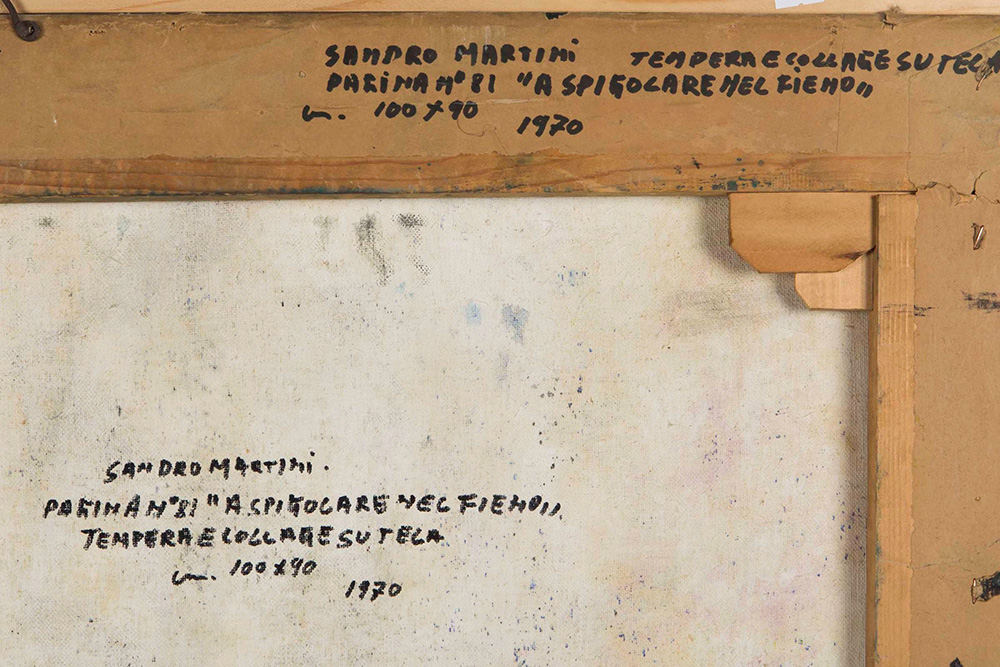 SANDRO MARTINI TEMPERA E COLLAGE SU TELA
PAGINA N° 81 "A SPIGOLARE NEL FIENO"
cm. 100 x 90
1970
SANDRO MARTINI.
PAGINA N° 81 "A SPIGOLARE NEL FIENO"
TEMPERA E COLLAGE SU TELA
cm. 100 x 90
1970